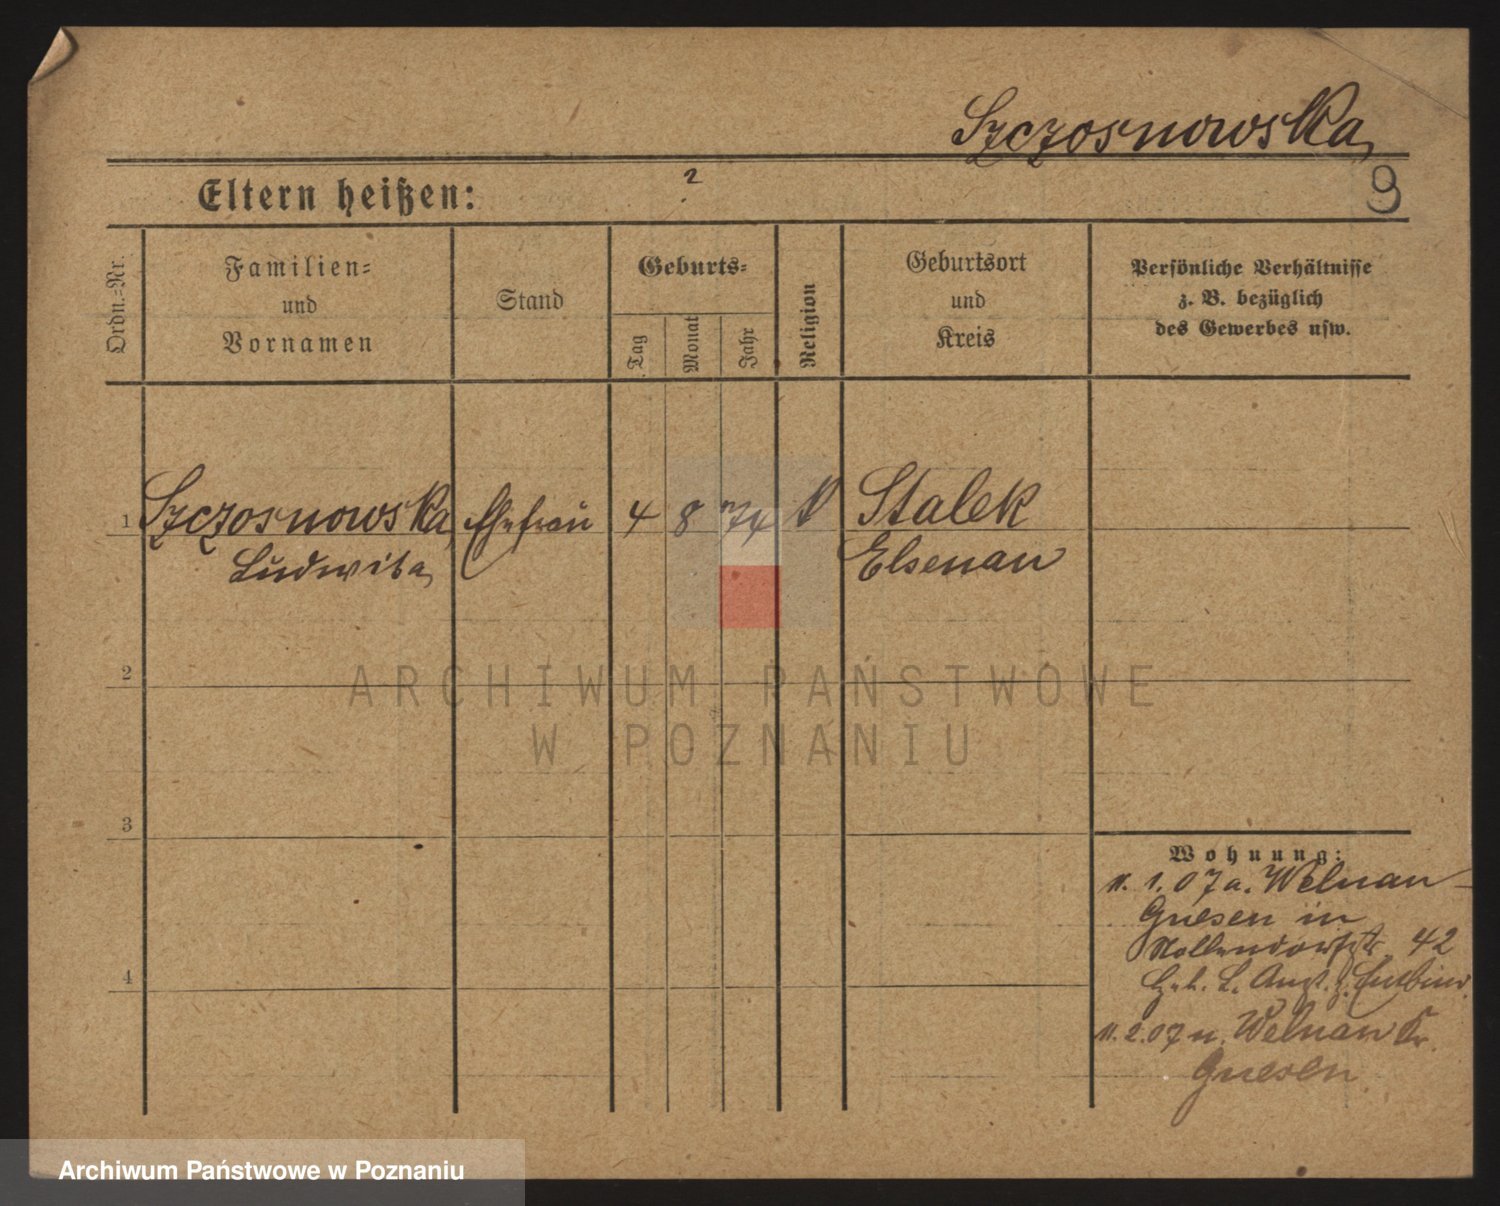 Szczosnowska
Eltern heißen: ?
9
Ordn.=Nr.
Familien=
und
Vornamen
Stand
Geburts=
Tag
Monat
Jahr
Religion
Geburtsort
und
Kreis
Persönliche Verhältnisse
z. B. bezüglich
des Gewerbes usw.
1 Szczosnowska Ehefrau 4 8 74 Stalek
Ludwika Elsenau
2
ARCHIWUM PAŃSTWOWE
W POZNANIU
3
Wohnung:
1.07 a. Welnau
Gnesen in
Nollendorfstr 42
L. Angl.
2.07 n. Welnau Kr.
4
Gnesen
Archiwum Państwowe w Poznaniu